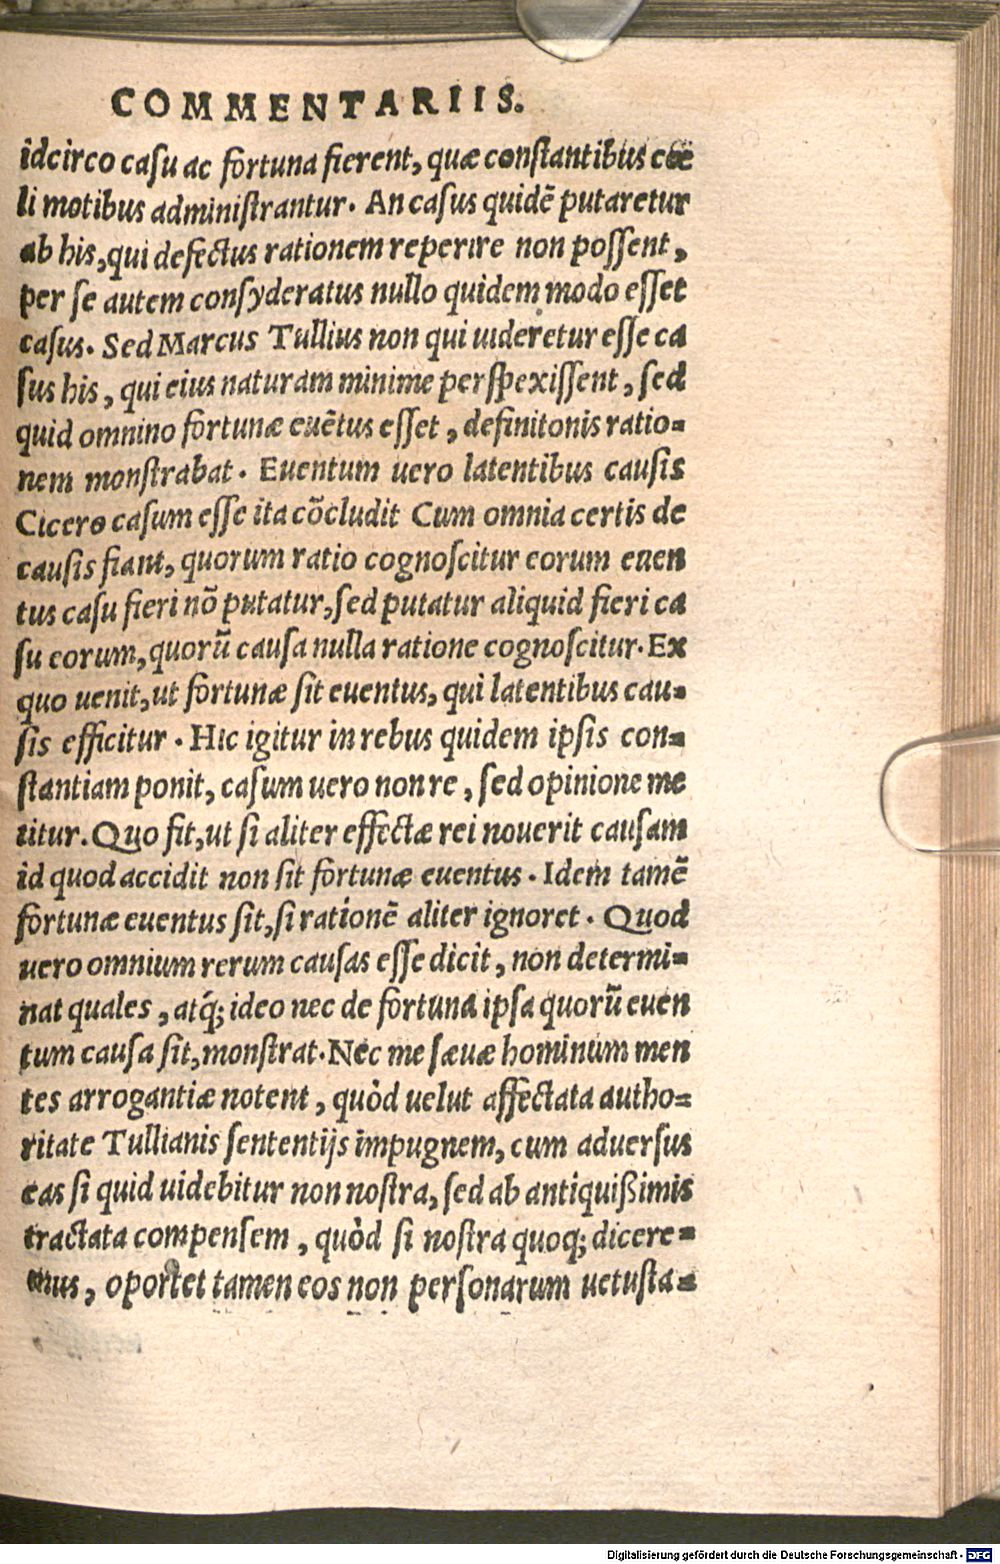 COMMENTARIIS.
idcirco casu ac fortuna fierent, quæ constantibus cœ
li motibus administrantur. An casus quidē putaretur
ab his, qui defectus rationem reperire non possent,
per se autem consyderatus nullo quidem modo esset
casus. Sed Marcus Tullius non qui uideretur esse ca
sus his, qui eius naturam minime perspexissent, sed
quid omnino fortunæ euētus esset, definitonis ratio-
nem monstrabat. Euentum uero latentibus causis
Cicero casum esse ita cōcludit Cum omnia certis de
causis fiant, quorum ratio cognoscitur eorum euen
tus casu fieri nō putatur, sed putatur aliquid fieri ca
su eorum, quorū causa nulla ratione cognoscitur. Ex
quo uenit, ut fortunæ sit euentus, qui latentibus cau-
sis efficitur. Hic igitur in rebus quidem ipsis con-
stantiam ponit, casum uero non re, sed opinione me
titur. Quo fit, ut si aliter effectæ rei nouerit causam
id quod accidit non sit fortunæ euentus. Idem tamē
fortunæ euentus sit, si rationē aliter ignoret. Quod
uero omnium rerum causas esse dicit, non determi-
nat quales, atq́; ideo nec de fortuna ipsa quorū euen
tum causa sit, monstrat. Nec me sæuæ hominum men
tes arrogantiæ notent, quòd uelut affectata autho-
ritate Tullianis sententijs impugnem, cum aduersus
eas si quid uidebitur non nostra, sed ab antiquißimis
tractata compensem, quòd si nostra quoq; dicere-
mus, oportet tamen eos non personarum uetusta-
Digitalisierung gefördert durch die Deutsche Forschungsgemeinschaft - DFG